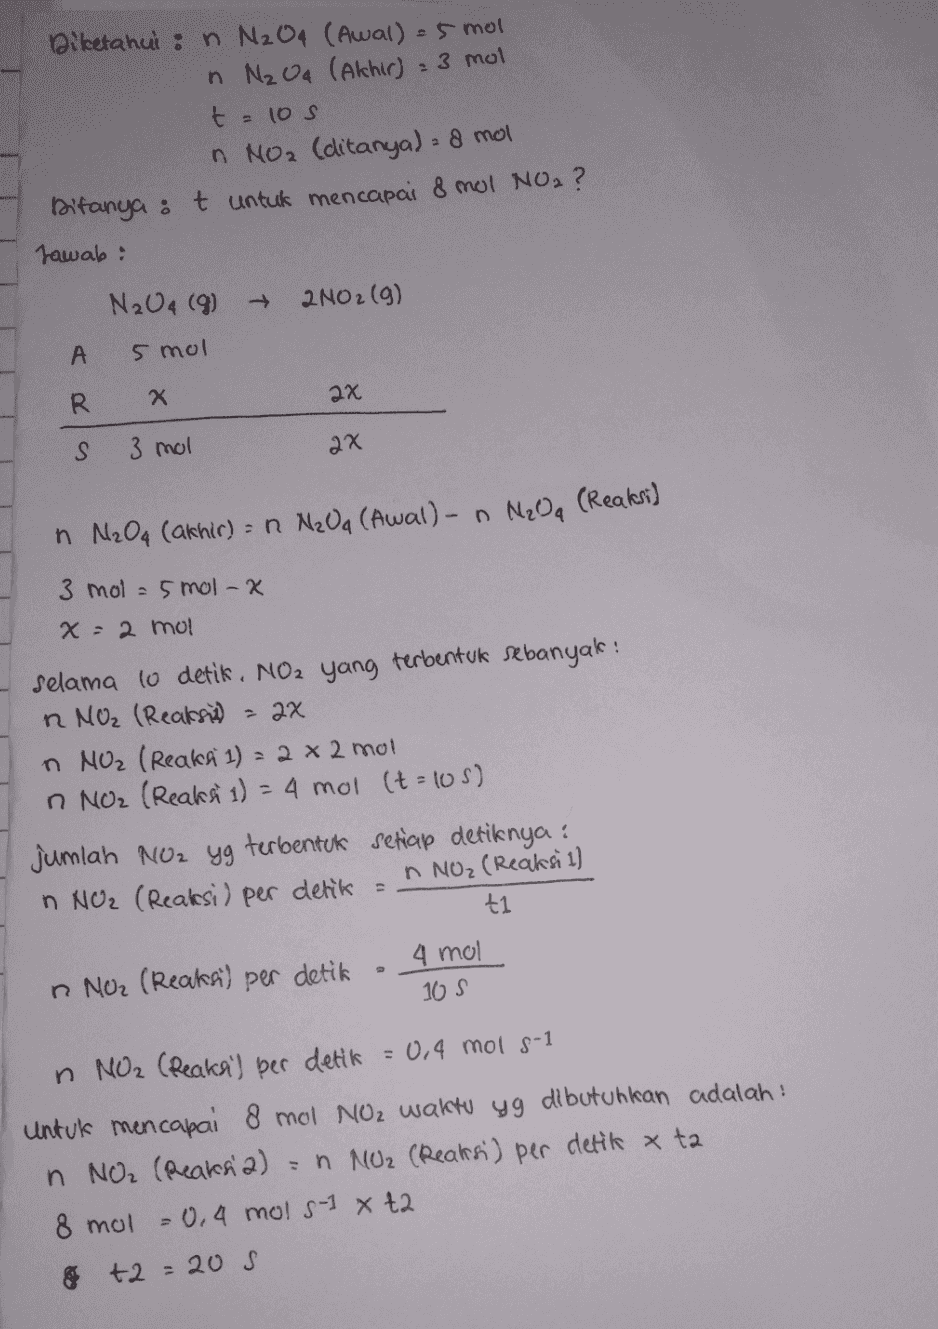 Diketahui : n N2O4 (Awal) = 5 mol
n N2O4 (Akhir) = 3 mol
t = 10 s
n NO2 (ditanya) = 8 mol
Ditanya : t untuk mencapai 8 mol NO2 ?
Jawab :
N2O4 (g) → 2NO2 (g)
A 5 mol
R x 2x
S 3 mol 2x
n N2O4 (akhir) = n N2O4 (Awal) - n N2O4 (Reaksi)
3 mol = 5 mol - x
x = 2 mol
selama 10 detik, NO2 yang terbentuk sebanyak :
n NO2 (Reaksi1) = 2x
n NO2 (Reaksi 1) = 2 x 2 mol
n NO2 (Reaksi 1) = 4 mol (t = 10 s)
jumlah NO2 yg terbentuk setiap detiknya :
n NO2 (Reaksi) per detik = n NO2 (Reaksi 1)
t1
n NO2 (Reaksi) per detik = 4 mol
10 s
n NO2 (Reaksi) per detik = 0,4 mol s-1
untuk mencapai 8 mol NO2 waktu yg dibutuhkan adalah :
n NO2 (Reaksi 2) = n NO2 (Reaksi) per detik x t2
8 mol = 0,4 mol s-1 x t2
t2 = 20 s